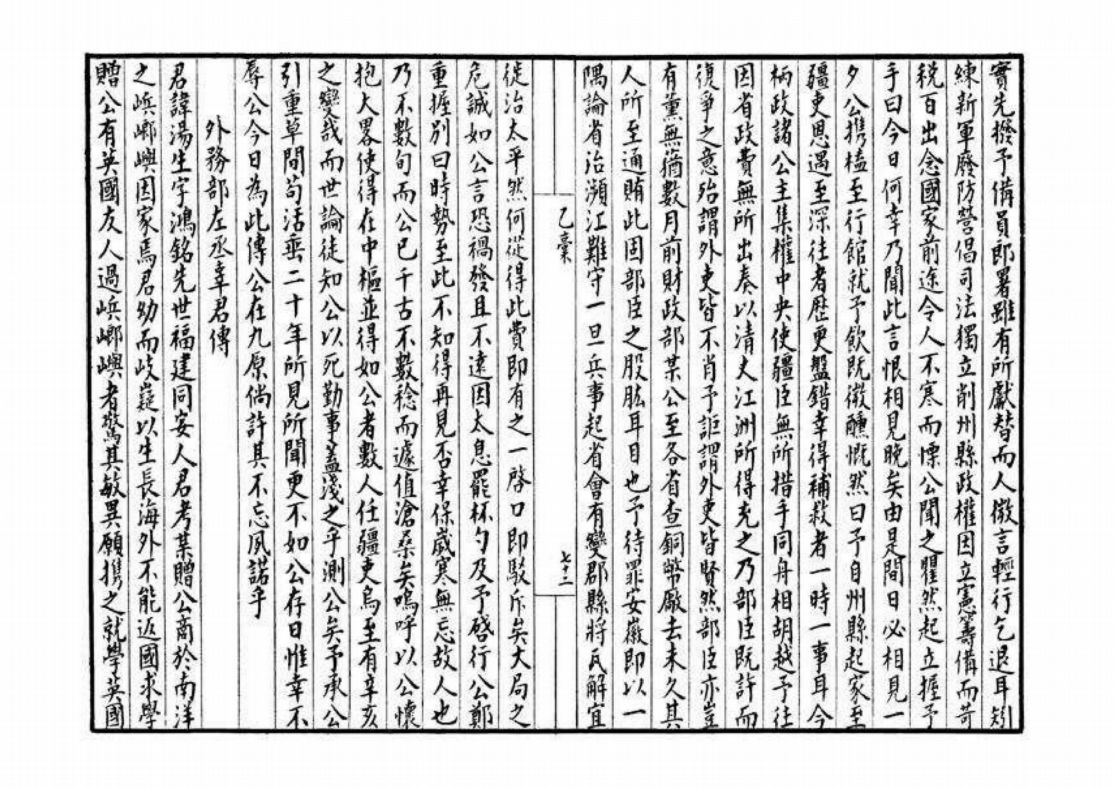 實先撥予備員郎署雖有所獻替而人微言輕行乞退耳矧
練新軍廢防營倡司法獨立削州縣政權因立憲籌備而苛
稅百出念國家前途令人不寒而慄公聞之瞿然起立握予
手曰今日何幸乃聞此言恨相見晚矣由是間日必相見一
夕公携榼至行館就予飲既微醺慨然曰予自州縣起家至
疆吏恩遇至深往者歷更盤錯幸得補救者一時一事耳今
柄政諸公主集權中央使疆臣無所措手同舟相胡越予往
因省政費無所出奏以清丈江洲所得充之乃部臣既許而
復爭之意殆謂外吏皆不肖予詎謂外吏皆賢然部臣亦豈
有薰無蕕數月前財政部某公至各省查銅幣廠去未久其
人所至通賄此固部臣之股肱耳目也予待罪安徽即以一
隅論省治瀕江難守一旦兵事起省會有變郡縣將瓦解宜
乙稾
七十二
徙治太平然何從得此費即有之一啓口即駁斥矣大局之
危誠如公言恐禍發且不遠因太息罷杯勺及予啓行公鄭
重握別曰時勢至此不知得再見否幸保歲寒無忘故人也
乃不數旬而公已千古不數稔而遽值滄桑矣嗚呼以公懷
抱大畧使得在中樞並得如公者數人任疆吏烏至有辛亥
之變哉而世論徒知公以死勤事蓋淺之乎測公矣予承公
引重草間苟活垂二十年所見所聞更不如公存日惟幸不
辱公今日為此傳公在九原倘許其不忘夙諾乎
外務部左丞辜君傳
君諱湯生字鴻銘先世福建同安人君考某贈公商於南洋
之梹榔嶼因家焉君幼而岐嶷以生長海外不能返國求學
贈公有英國友人過梹榔嶼者驚其敏異願携之就學英國